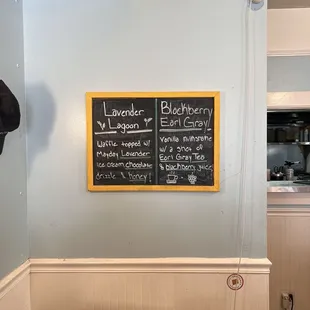 Lavender
Lagoon
Waffle topped w/
Mayday Lavender
ice cream, chocolate
drizzle & honey!
Blackberry
Earl Gray!
Vanilla milkshake
w/ a shot of
Earl Gray Tea
& blackberry juices